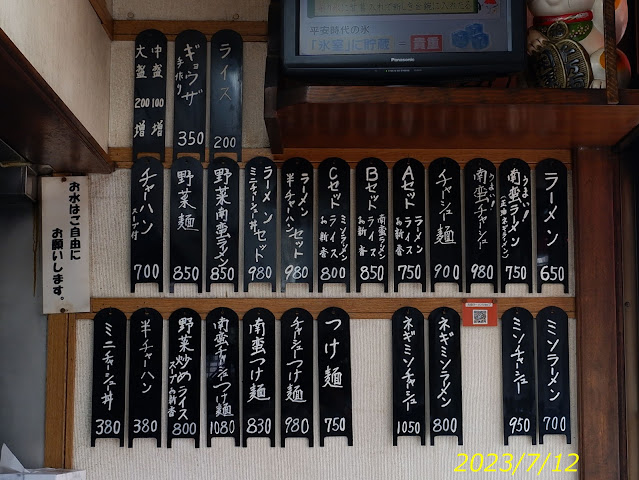 平安時代の氷
「氷室」に貯蔵 = 貴重
Panasonic
ライス
200
ギョウザ
手作り
350
中盛 100増
大盛 200増
ラーメン
650
うまい!
南蛮ラーメン
750
うまい!
南蛮チャーシュー
980
チャーシュー麺
900
Aセット
ラーメン
ライス
お新香
750
Bセット
南蛮ラーメン
ライス
お新香
850
Cセット
ミソラーメン
ライス
お新香
800
ラーメンセット
半チャーハン
980
ラーメンセット
ミニチャーシュー丼
980
野菜南蛮ラーメン
850
野菜麺
850
チャーハン
スープ付
700
お水はご自由に
お願いします。
ミソラーメン
700
ミソチャーシュー
950
ネギミソラーメン
800
ネギミソチャーシュー
1050
つけ麺
750
チャーシューつけ麺
980
南蛮つけ麺
830
南蛮チャーシューつけ麺
1080
野菜炒めライス
スープお新香
800
半チャーハン
380
ミニチャーシュー丼
380
2023/7/12